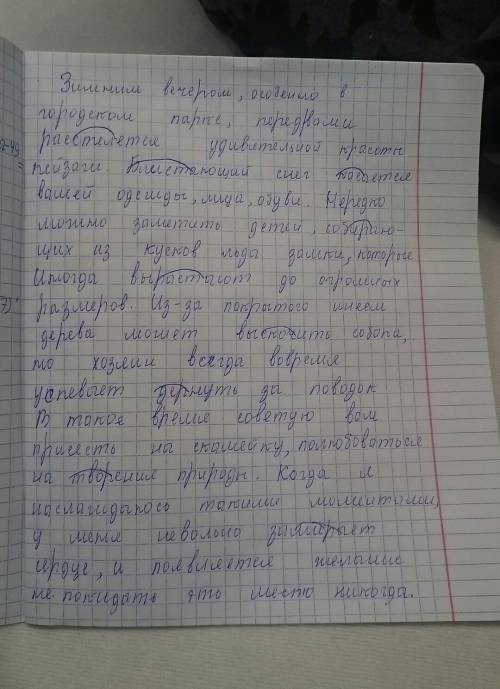 Зимним вечером, особенно в
городском парке, передвами
расстилется удивительной красоты
пейзаги. Блистающий снег касается
вашей одежды, лица, обуви. Нередко
можно заметить детей, собираю-
щих из кусков льда замки, которые
Иногда вырастают до огромных
размеров. Из-за покрытого инеем
дерева может выскочить собака,
но хозяин всегда вовремя
успевает дернуть за поводок
В такое время советую вам
присесть на скамейку, полюбоваться
на творения природы. Когда я
наслаждаюсь такими моментами,
у меня невольно замирает
сердце, и появляется желание
не покидать это место никогда.